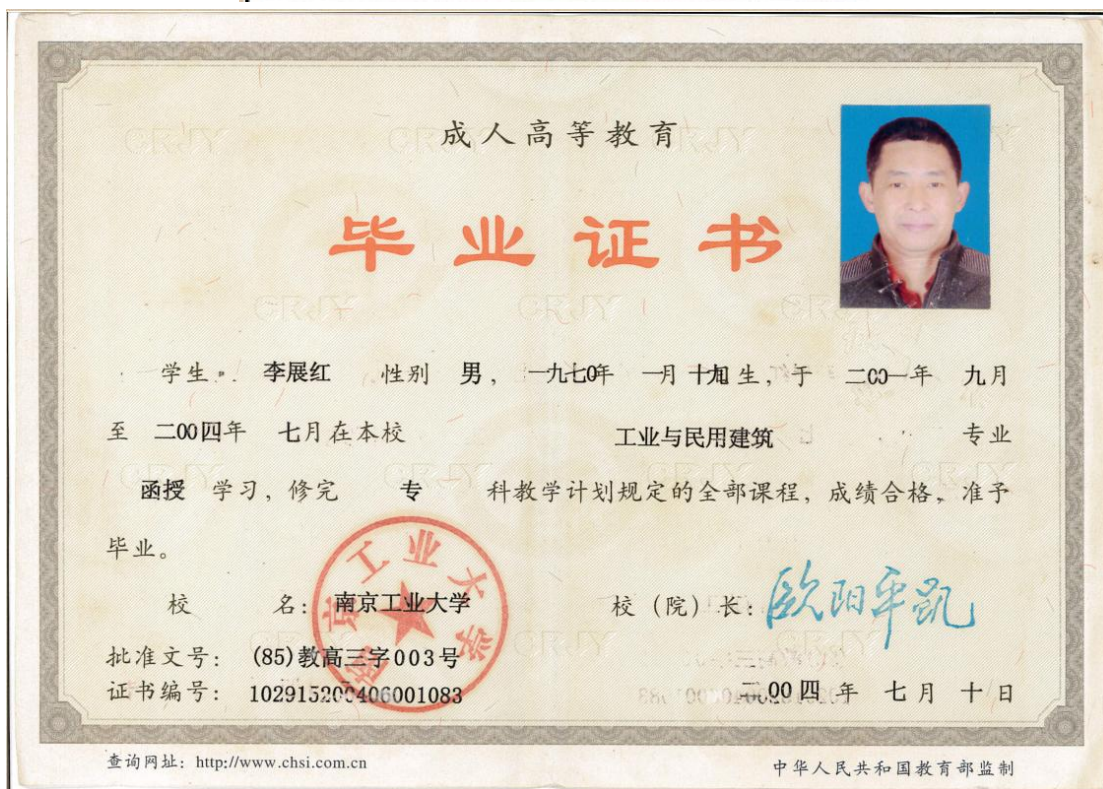 成人高等教育
毕业证书
学生 李展红 性别 男，一九七0年 一月 十九日生，于 二00一年 九月
至 二00四年 七月在本校 工业与民用建筑 专业
函授 学习，修完 专 科教学计划规定的全部课程，成绩合格，准予
毕业。
校 名：南京工业大学 校（院）长：欧阳平凯
批准文号：(85)教高三字003号
证书编号：102915200406001083 二00四年 七月十日
南京工业大学
查询网址：http://www.chsi.com.cn 中华人民共和国教育部监制
CRJY